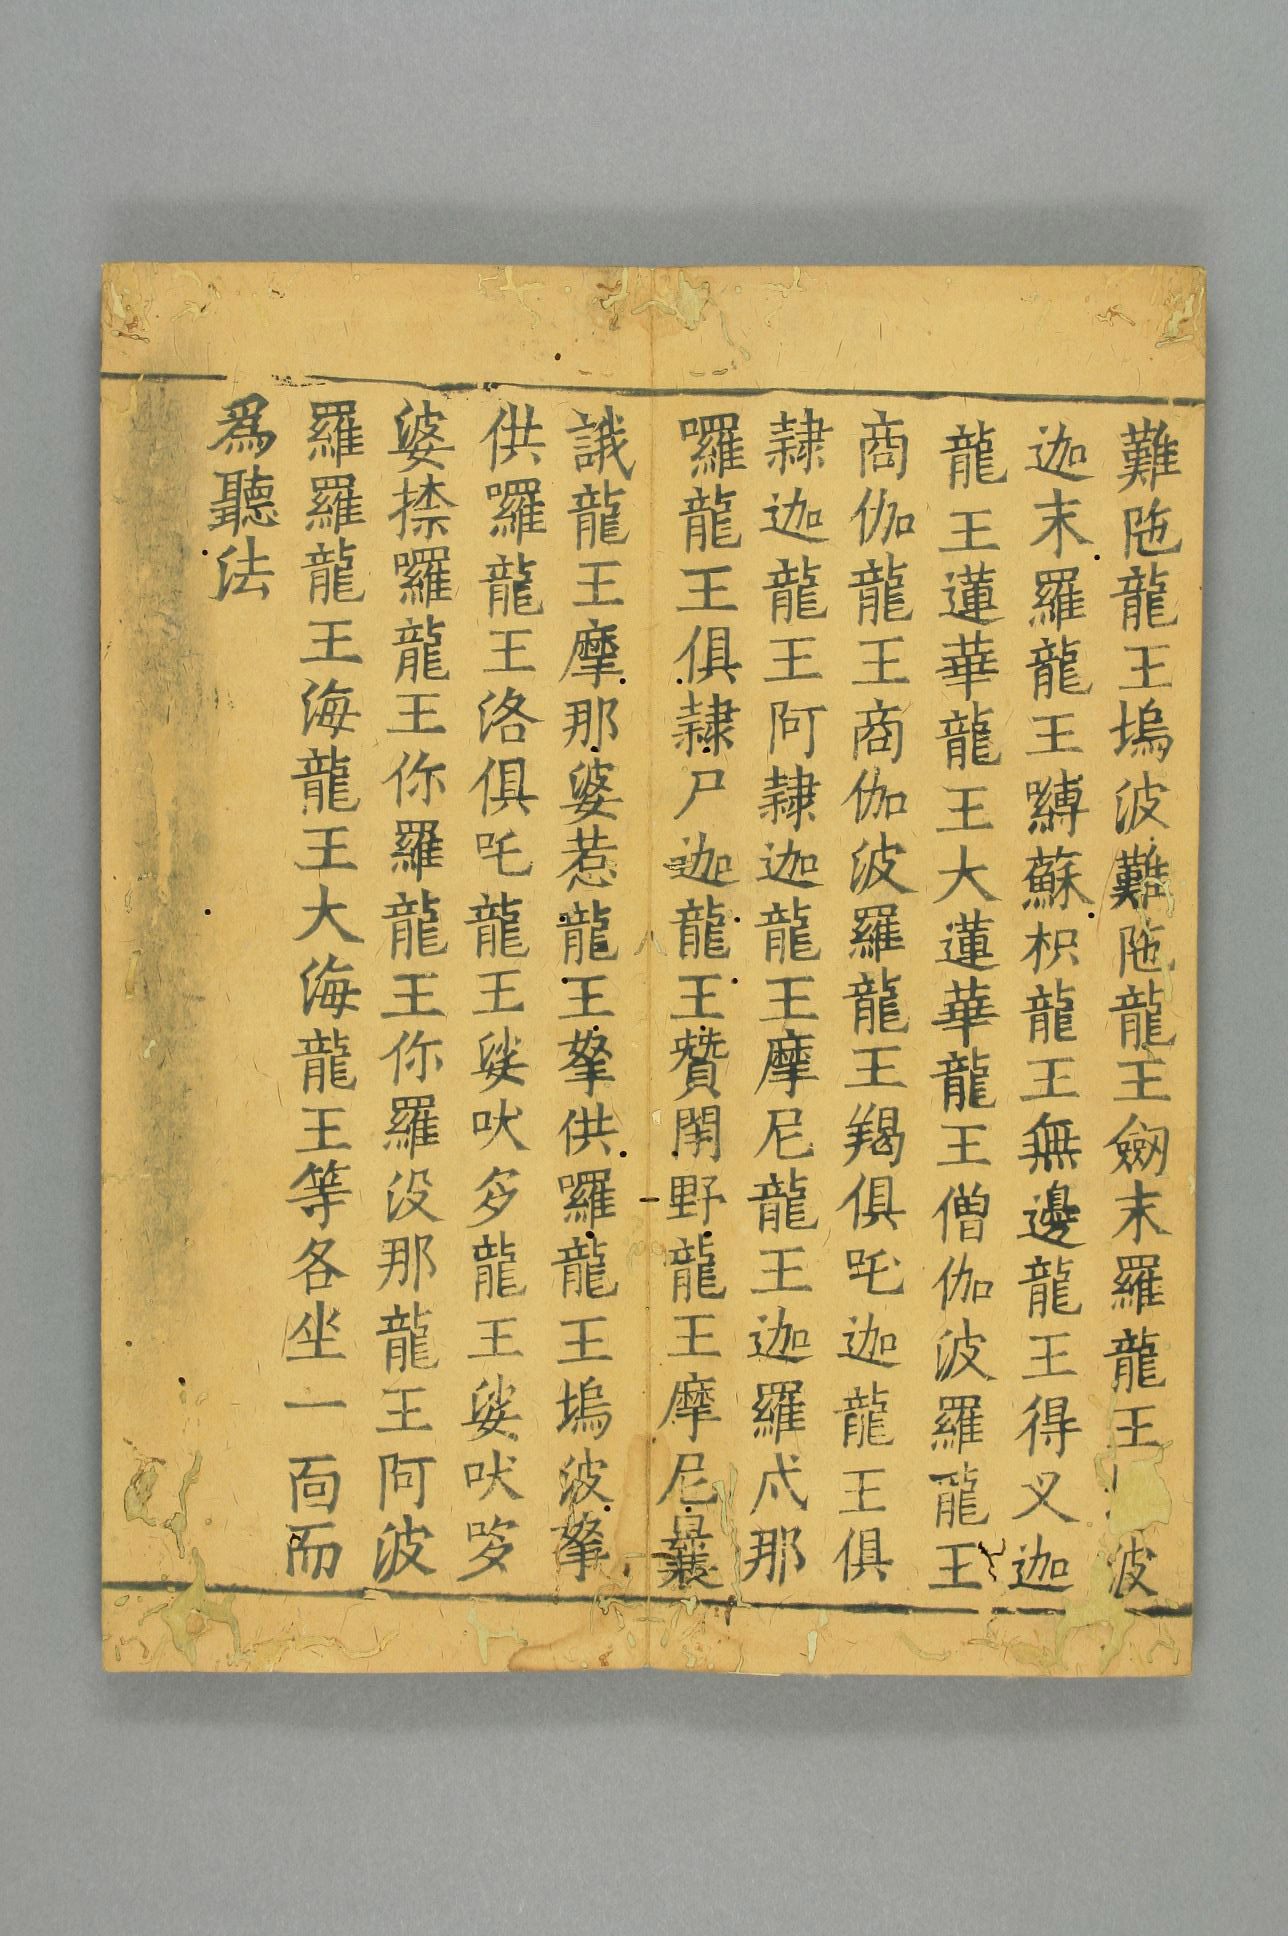 難陁龍王塢波難陁龍王劒末羅龍王波
迦末羅龍王嚩蘇枳龍王無邊龍王得叉迦
龍王蓮華龍王大蓮華龍王僧伽波羅龍王
商伽龍王商伽波羅龍王羯俱吒迦龍王俱
隸迦龍王阿隸迦龍王摩尼龍王迦羅戍那
囉龍王俱隸尸迦龍王贊閈野龍王摩尼曩
誐龍王摩那婆惹龍王拏供囉龍王塢波拏
供囉龍王洛俱吒龍王娑吠多龍王娑吠哆
婆捺囉龍王你羅龍王你羅没那龍王阿波
羅羅龍王海龍王大海龍王等各坐一面而
爲聽法